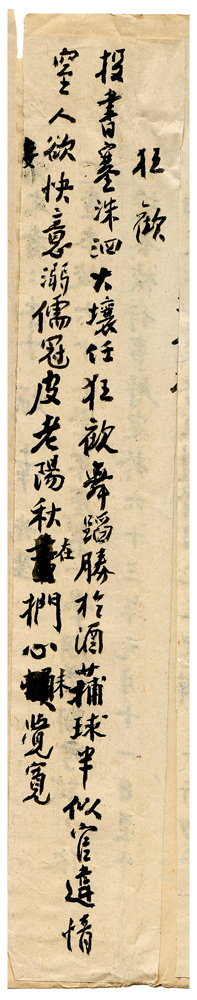 狂歡
投書塞洙泗大壤任狂歡舞蹈勝於酒蒱球半似官違情
窒人欲快意溺儒冠皮老陽秋在捫心未覺寬